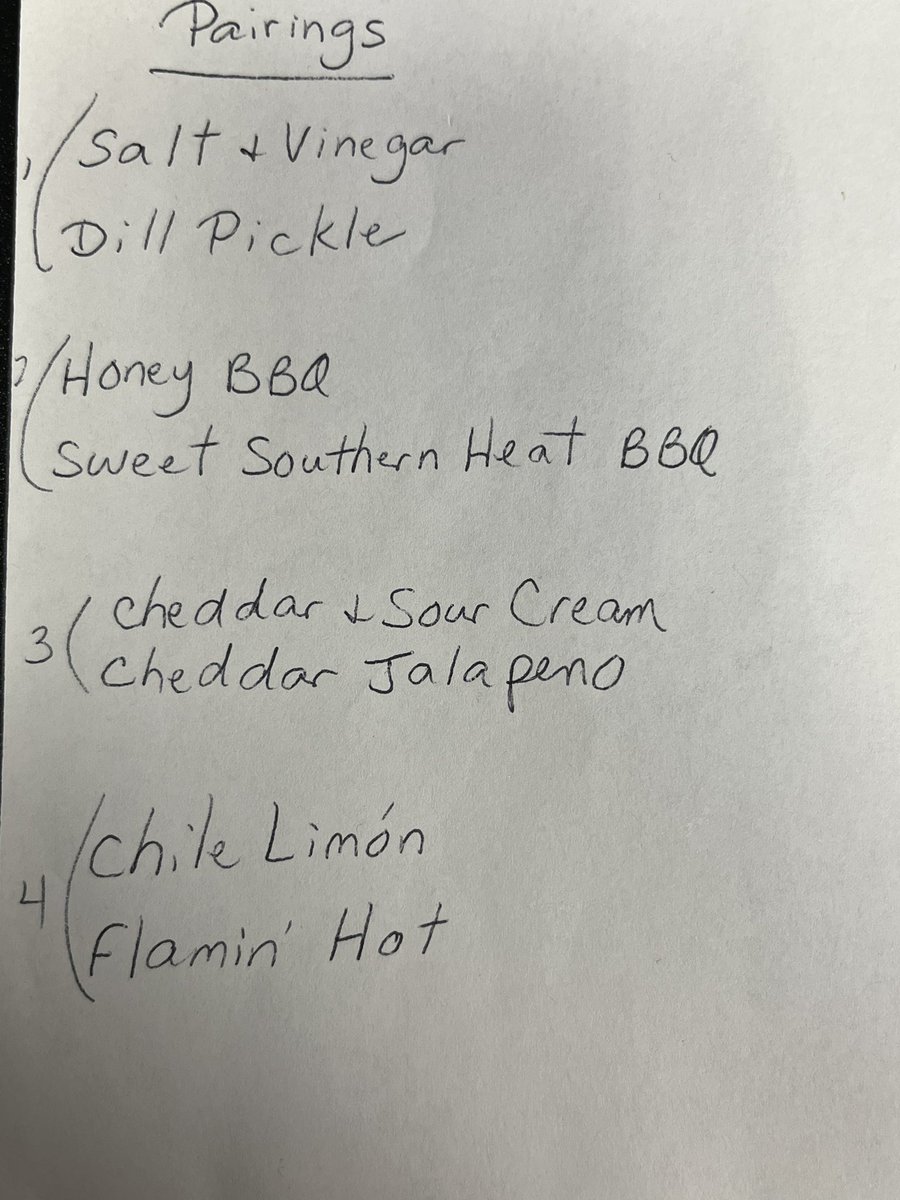 Pairings
1 Salt & Vinegar
Dill Pickle
2 Honey BBQ
Sweet Southern Heat BBQ
3 Cheddar & Sour Cream
Cheddar Jalapeno
4 Chile Limón
Flamin' Hot